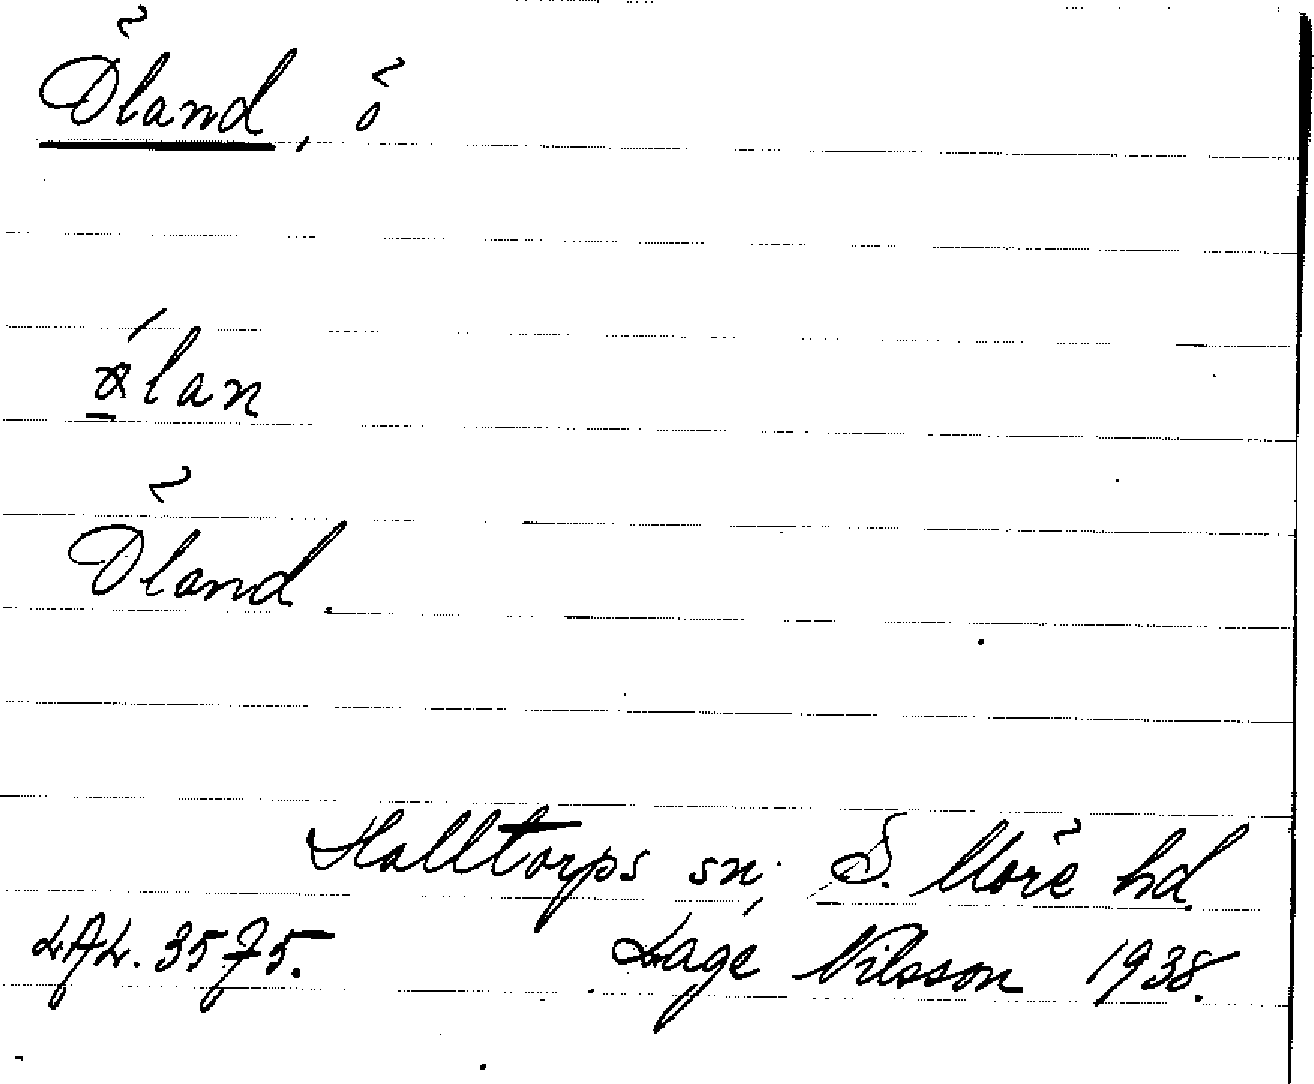 Öland, ö
ǿ̱lan
Öland.
Halltorps sn; S. Möre hd.
LAL. 3575. Låge Nilsson 1938.